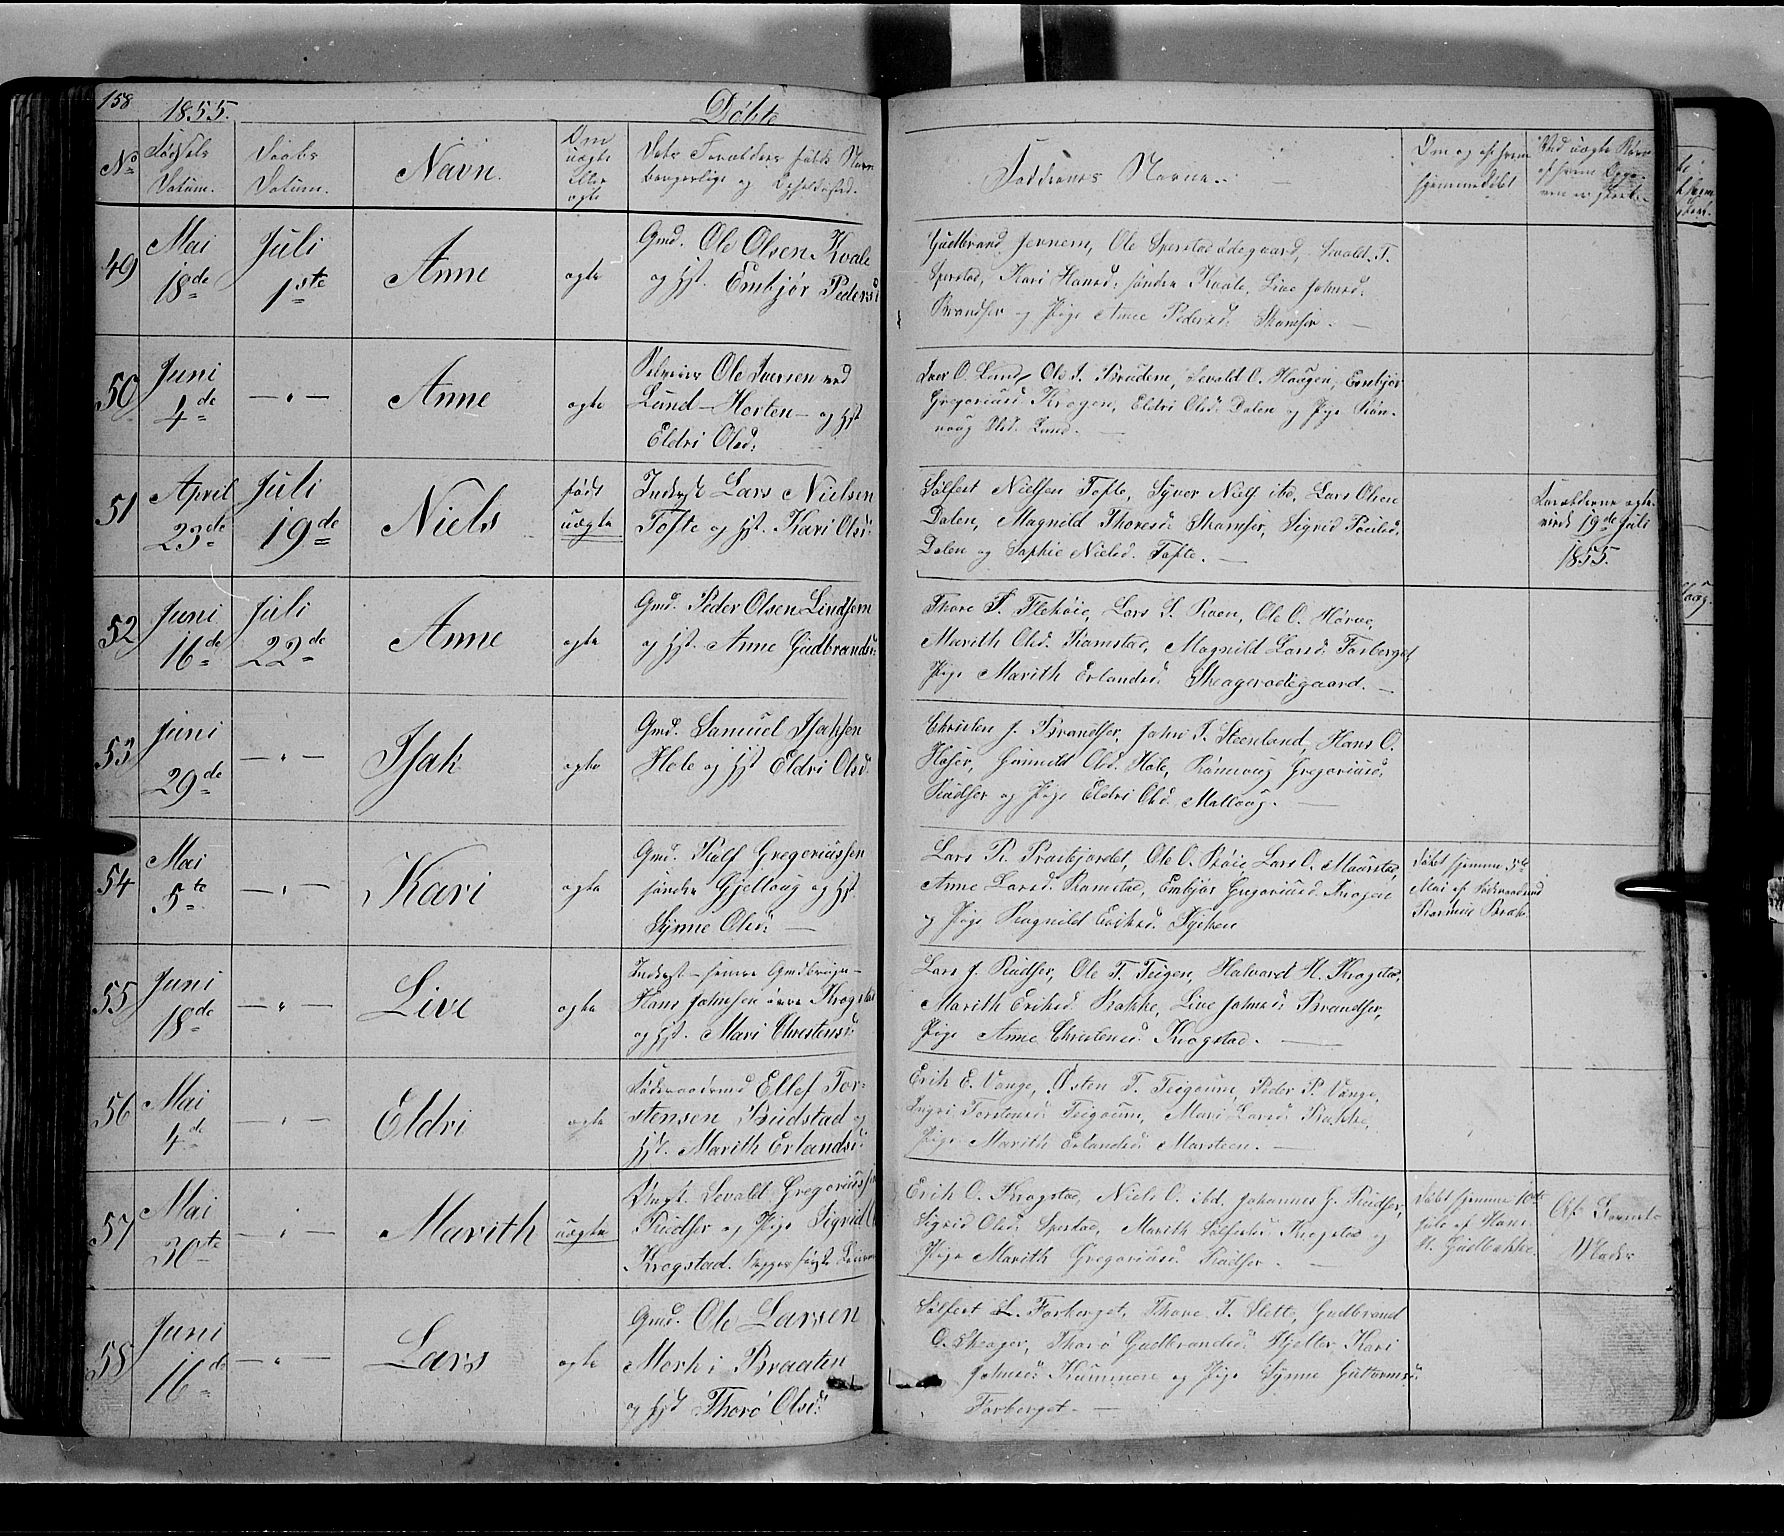 158
1855.
Døbte
No
Fødsels Datum.
Daabs Datum.
Navn.
Om uægte Eller ægte
Dets Forældres fulde Navn
borgerlige og Opholdssted.
Faddernes Navne.
Om og af hvem hjemmedøbt
Ved uægte Børn af hvem
49 Mai 18de Juli 1ste Anne ægte
Gmd. Ole Olsen Kvale
og Hst. Embjør Pedersd
Gudbrand Jernem, Ole Sperstadødegaard, Sevald T.
Sperstad, Kari Hansd: søndre Kvale, Live Johnsd:
Brandser og Pige Anne Pedersd: Skamser. —
50 Juni 4de — " — Anne ægte
Ole Iversen ved
Lund — Horten — og Hst
Eldri Olsd:
Iver O. Lund, Ole I. Bruden, Sevald O. Haugen, Embjør
Gregoriusd Krogen, Eldri Olsd: Dalen og Pige Røn-
naug Olsd: Lund. —
51 April 23de Juli 19de Niels født uægte
Inderst Lars Nielsen
Tofte og Hst. Kari Olsd:
Sølfest Nielsen Tofte, Syver Niels ibd, Lars Olsen
Dalen, Magnild Thoresd: Skamser, Sigrid Poulsd:
Dalen og Sophie Nielsd. Tofte. —
Forældrene ægte-
viet 19de Juli
1855.
52 Juni 16de Juli 22de Anne ægte
Gmd. Peder Olsen Lindsem
og Hst. Anne Gudbrandsd:
Thore T. Flekøie, Lars S. Roen, Ole O. Hørve,
Marith Olsd. Ramstad, Magnild Larsd: Forberget,
Pige Marith Erlandsd: Skeagerødegaard. —
53 Juni 29de — " — Isak ægte
Gmd. Samuel Isaksen
Hole og Hst Eldri Olsd:
Christen J. Brandser, John I. Steenland, Hans O.
Høser, Gunnild Olsd. Hole, Rønnaug Gregoriusd:
Rudser og Pige Eldri Olsd. Mallaug. —
54 Mai 5te — " — Kari ægte
Gmd. Rolf Gregoriussen
søndre Gjellaug og Hst.
Synne Olsd: —
Lars R. Præstjordet, Ole O. Røie, Lars O. Maurstad,
Anne Larsd. Ramstad, Embjør Gregoriusd Krogen
og Pige Ragnild Eriksd: Syken
Døbt hjemme 5te
Mai af Føderaadsmd
55 Juni 18de — " — Live ægte
Inderst — senere Gmdbruger —
Hans Johnsen øvre Krogstad
og Hst. Mari Christensd:
Lars J. Rudser, Ole T. Teigen, Halvard H. Krogstad,
Marith Eriksd. Bakke, Live Johnsd: Brandser,
Pige Anne Christensd: Krogstad. —
56 Mai 4de — " — Eldri ægte
Føderaadsmd Ellef Tor-
stensen Rudstad og
Hst. Marith Erlandsd:
Erik E. Vange, Østen T. Teigoum, Peder P. Vange,
Ingri Torstensd: Teigoum, Mari Larsd: Bakke,
Pige Marith Erlandsd: Marsteen. —
57 Mai 30te — " — Marith uægte
Ungk. Sevald Gregoriussen
Rudser og Pige Sigrid
Krogstad.
Erik O. Krogstad, Niels O. ibd, Johannes G. Rudser,
Sigrid Olsd: Sperstad, Marith Sølfestsd: Krogstad og
Pige Marith Gregoriusd: Rudser. —
Døbt hjemme 10de
Juli af Hans
H. Gudbakke.
Af Barnets
Moder
58 Juni 16de — " — Lars ægte
Gmd. Ole Larsen
Mork i Braaten
og Hst Thorø Olsd:
Sølfest L. Forberget, Thore T. Slette, Gudbrand
O. Skeager, Thorø Gudbrandsd: Hjelter, Kari
Johnsd: Kummen og Pige Synne Guttormsd:
Forberget. —